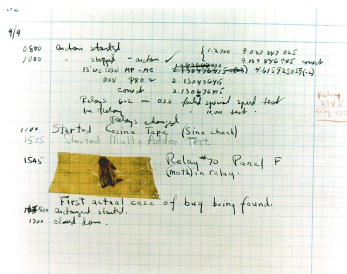 9/9
0800 antan started
1000 " stopped - antan ✓ { 1.2700 9.037 847 025
9.037 846 995 correct
13"uc (032) MP-MC 2.130476415 4.615925059(-2)
(033) PRO 2 2.130476415
correct 2.130676415
Relays 6-2 in 033 failed special speed test
in Relay " test.
Relay
Relays changed
1100 Started Cosine Tape (Sine check)
1525 Started Multi Adder Test.
1545 Relay #70 Panel F
(moth) in relay.
First actual case of bug being found.
antangent started.
1700 closed down.